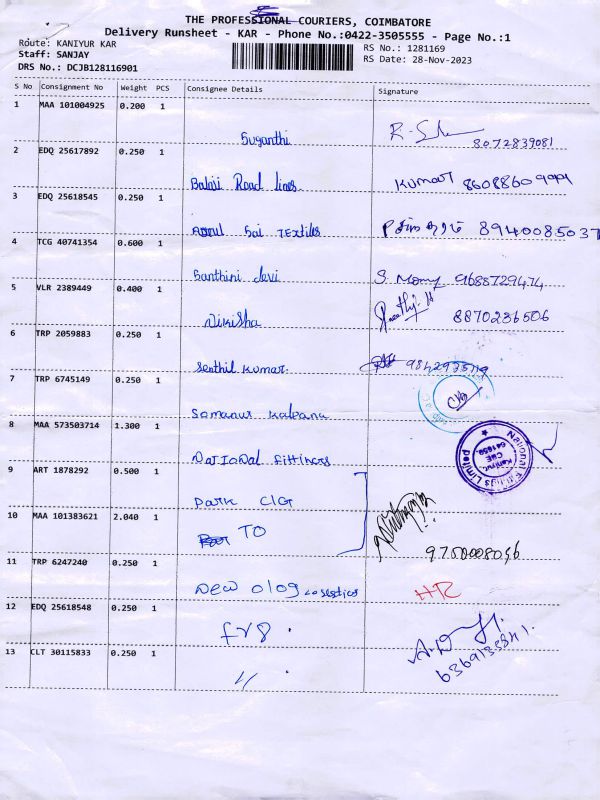 THE PROFESSIONAL COURIERS, COIMBATORE
Delivery Runsheet - KAR - Phone No.:0422-3505555 - Page No.:1
Route: KANIYUR KAR
RS No.: 1281169
Staff: SANJAY
RS Date: 28-Nov-2023
DRS No.: DCJB128116901
S No Consignment No Weight PCS Consignee Details Signature
1 MAA 101004925 0.200 1
Suganthi 8072839081
2 EDQ 25617892 0.250 1
Balaji Road Lines Kumar 86088609999
3 EDQ 25618545 0.250 1
Sai Textiles 8940085037
4 TCG 40741354 0.600 1
Santhini devi S. Mony 9688729474
5 VLR 2389449 0.400 1
Nikisha 8870236506
6 TRP 2059883 0.250 1
Senthil Kumar.
7 TRP 6745149 0.250 1
Somanur
8 MAA 573503714 1.300 1
National Fittings
National Fittings Limited
Kaniyur,
CBE
641659.
9 ART 1878292 0.500 1
Park CLG
10 MAA 101383621 2.040 1
TO
9750008096
11 TRP 6247240 0.250 1
New HR
12 EDQ 25618548 0.250 1
13 CLT 30115833 0.250 1
〃